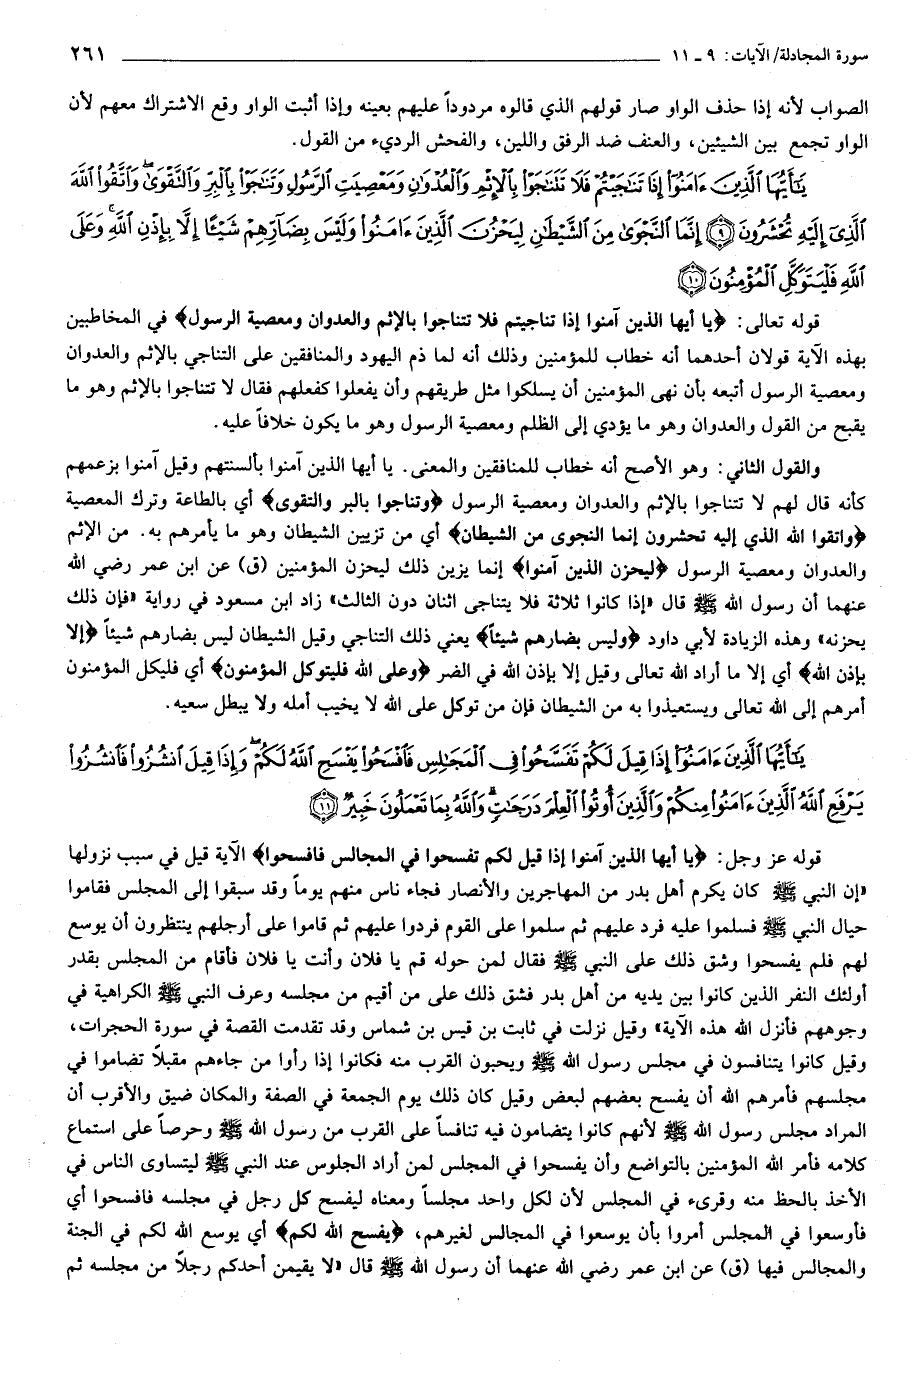 سورة المجادلة/ الآيات: ٩ ـ ١١ ٢٦١
الصواب لأنه إذا حذف الواو صار قولهم الذي قالوه مردوداً عليهم بعينه وإذا أثبت الواو وقع الاشتراك معهم لأن
الواو تجمع بين الشيئين، والعنف ضد الرفق واللين، والفحش الرديء من القول.
يَٰٓأَيُّهَا ٱلَّذِينَ ءَامَنُوٓا۟ إِذَا تَنَٰجَيْتُمْ فَلَا تَتَنَٰجَوْا۟ بِٱلْإِثْمِ وَٱلْعُدْوَٰنِ وَمَعْصِيَتِ ٱلرَّسُولِ وَتَنَٰجَوْا۟ بِٱلْبِرِّ وَٱلتَّقْوَىٰ ۖ وَٱتَّقُوا۟ ٱللَّهَ
ٱلَّذِىٓ إِلَيْهِ تُحْشَرُونَ ﴿٩﴾ إِنَّمَا ٱلنَّجْوَىٰ مِنَ ٱلشَّيْطَٰنِ لِيَحْزُنَ ٱلَّذِينَ ءَامَنُوا۟ وَلَيْسَ بِضَآرِّهِمْ شَيْـًٔا إِلَّا بِإِذْنِ ٱللَّهِ ۚ وَعَلَى
ٱللَّهِ فَلْيَتَوَكَّلِ ٱلْمُؤْمِنُونَ ﴿١٠﴾
قوله تعالى: ﴿يا أيها الذين آمنوا إذا تناجيتم فلا تتناجوا بالإثم والعدوان ومعصية الرسول﴾ في المخاطبين
بهذه الآية قولان أحدهما أنه خطاب للمؤمنين وذلك أنه لما ذم اليهود والمنافقين على التناجي بالإثم والعدوان
ومعصية الرسول أتبعه بأن نهى المؤمنين أن يسلكوا مثل طريقهم وأن يفعلوا كفعلهم فقال لا تتناجوا بالإثم وهو ما
يقبح من القول والعدوان وهو ما يؤدي إلى الظلم ومعصية الرسول وهو ما يكون خلافاً عليه.
والقول الثاني: وهو الأصح أنه خطاب للمنافقين والمعنى. يا أيها الذين آمنوا بألسنتهم وقيل آمنوا بزعمهم
كأنه قال لهم لا تتناجوا بالإثم والعدوان ومعصية الرسول ﴿وتناجوا بالبر والتقوى﴾ أي بالطاعة وترك المعصية
﴿واتقوا الله الذي إليه تحشرون إنما النجوى من الشيطان﴾ أي من تزيين الشيطان وهو ما يأمرهم به. من الإثم
والعدوان ومعصية الرسول ﴿ليحزن الذين آمنوا﴾ إنما يزين ذلك ليحزن المؤمنين (ق) عن ابن عمر رضي الله
عنهما أن رسول الله ﷺ قال «إذا كانوا ثلاثة فلا يتناجى اثنان دون الثالث» زاد ابن مسعود في رواية «فإن ذلك
يحزنه» وهذه الزيادة لأبي داود ﴿وليس بضارهم شيئاً﴾ يعني ذلك التناجي وقيل الشيطان ليس بضارهم شيئاً ﴿إلا
بإذن الله﴾ أي إلا ما أراد الله تعالى وقيل إلا بإذن الله في الضر ﴿وعلى الله فليتوكل المؤمنون﴾ أي فليكل المؤمنون
أمرهم إلى الله تعالى ويستعيذوا به من الشيطان فإن من توكل على الله لا يخيب أمله ولا يبطل سعيه.
يَٰٓأَيُّهَا ٱلَّذِينَ ءَامَنُوٓا۟ إِذَا قِيلَ لَكُمْ تَفَسَّحُوا۟ فِى ٱلْمَجَٰلِسِ فَٱفْسَحُوا۟ يَفْسَحِ ٱللَّهُ لَكُمْ ۖ وَإِذَا قِيلَ ٱنشُزُوا۟ فَٱنشُزُوا۟
يَرْفَعِ ٱللَّهُ ٱلَّذِينَ ءَامَنُوا۟ مِنكُمْ وَٱلَّذِينَ أُوتُوا۟ ٱلْعِلْمَ دَرَجَٰتٍ ۚ وَٱللَّهُ بِمَا تَعْمَلُونَ خَبِيرٌ ﴿١١﴾
قوله عز وجل: ﴿يا أيها الذين آمنوا إذا قيل لكم تفسحوا في المجالس فافسحوا﴾ الآية قيل في سبب نزولها
«إن النبي ﷺ كان يكرم أهل بدر من المهاجرين والأنصار فجاء ناس منهم يوماً وقد سبقوا إلى المجلس فقاموا
حيال النبي ﷺ فسلموا عليه فرد عليهم ثم سلموا على القوم فردوا عليهم ثم قاموا على أرجلهم ينتظرون أن يوسع
لهم فلم يفسحوا وشق ذلك على النبي ﷺ فقال لمن حوله قم يا فلان وأنت يا فلان فأقام من المجلس بقدر
أولئك النفر الذين كانوا بين يديه من أهل بدر فشق ذلك على من أقيم من مجلسه وعرف النبي ﷺ الكراهية في
وجوههم فأنزل الله هذه الآية» وقيل نزلت في ثابت بن قيس بن شماس وقد تقدمت القصة في سورة الحجرات،
وقيل كانوا يتنافسون في مجلس رسول الله ﷺ ويحبون القرب منه فكانوا إذا رأوا من جاءهم مقبلاً تضاموا في
مجلسهم فأمرهم الله أن يفسح بعضهم لبعض وقيل كان ذلك يوم الجمعة في الصفة والمكان ضيق والأقرب أن
المراد مجلس رسول الله ﷺ لأنهم كانوا يتضامون فيه تنافساً على القرب من رسول الله ﷺ وحرصاً على استماع
كلامه فأمر الله المؤمنين بالتواضع وأن يفسحوا في المجلس لمن أراد الجلوس عند النبي ﷺ ليتساوى الناس في
الأخذ بالحظ منه وقرىء في المجلس لأن لكل واحد مجلساً ومعناه ليفسح كل رجل في مجلسه فافسحوا أي
فأوسعوا في المجلس أمروا بأن يوسعوا في المجالس لغيرهم، ﴿يفسح الله لكم﴾ أي يوسع الله لكم في الجنة
والمجالس فيها (ق) عن ابن عمر رضي الله عنهما أن رسول الله ﷺ قال «لا يقيمن أحدكم رجلاً من مجلسه ثم